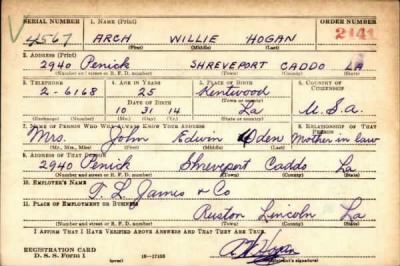 SERIAL NUMBER 1. NAME (Print) ORDER NUMBER
V 4567 ARCH WILLIE HOGAN 2141
(First) (Middle) (Last)
2. ADDRESS (Print)
2940 Penick SHREVEPORT CADDO LA
(Number and street or R. F. D. number) (Town) (County) (State)
3. TELEPHONE 4. AGE IN YEARS 5. PLACE OF BIRTH 6. COUNTRY OF CITIZENSHIP
2-6168 25 Kentwood
DATE OF BIRTH
10 31 14 La U.S.a.
(Mo.) (Day) (Yr.) (State or country)
7. NAME OF PERSON WHO WILL ALWAYS KNOW YOUR ADDRESS 8. RELATIONSHIP OF THAT PERSON
Mrs. John Edwin Oden Mother in law
(Mr., Mrs., Miss) (First) (Middle) (Last)
9. ADDRESS OF THAT PERSON
2940 Penick Shreveport Caddo La
(Number and street or R. F. D. number) (Town) (County) (State)
10. EMPLOYER'S NAME
T. L. James & Co
11. PLACE OF EMPLOYMENT OR BUSINESS
Ruston Lincoln La
(Number and street or R. F. D. number) (Town) (County) (State)
I AFFIRM THAT I HAVE VERIFIED ABOVE ANSWERS AND THAT THEY ARE TRUE.
REGISTRATION CARD
D. S. S. Form 1 (over) 16-17105